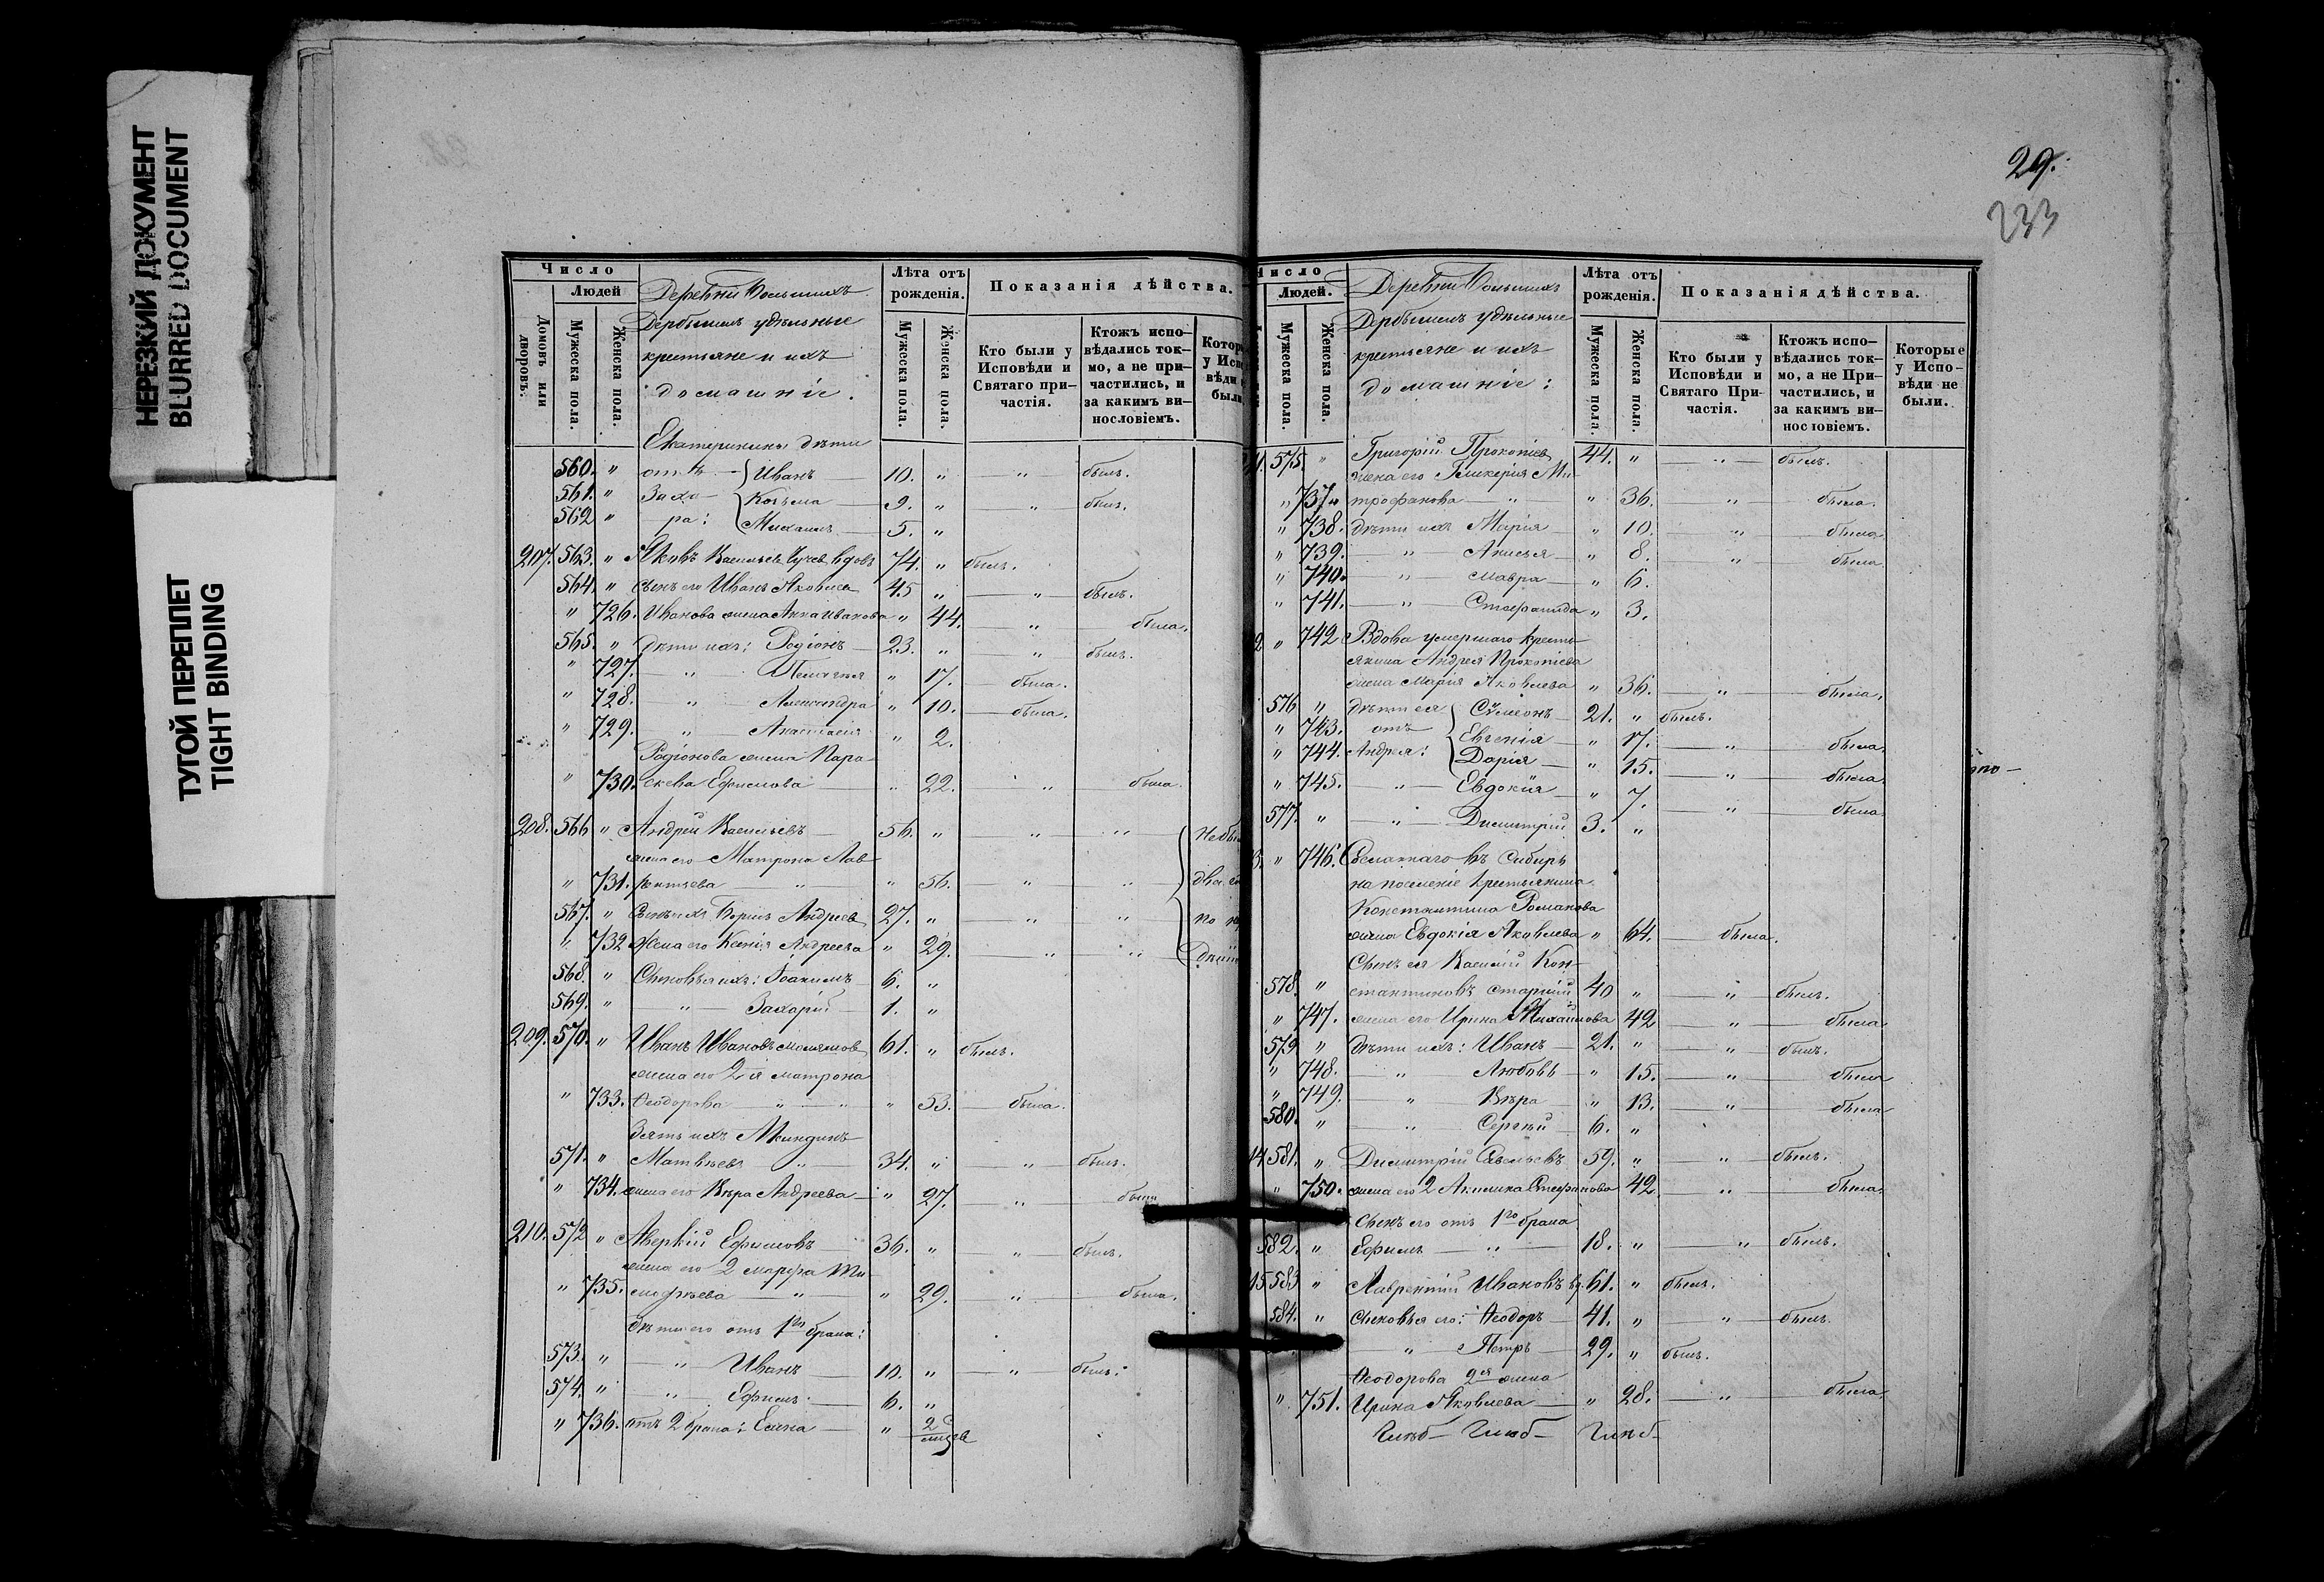 НЕРЕЗКИЙ ДОКУМЕНТ
BLURRED DOCUMENT
ТУГОЙ ПЕРЕПЛЕТ
TIGHT BINDING
Число
Людей
Домовъ или дворовъ.
Мужеска пола.
Женска пола.
Деревни Большихъ
Дербышевъ удѣльные
крестьяне и ихъ
домашніе.
Лѣта отъ рожденія.
Мужеска пола.
Женска пола.
Показанія дѣйства.
Кто были у Исповѣди и Святаго при-частія.
Ктожъ испо-вѣдались ток-мо, а не при-частились, и за какимъ ви-нословіемъ.
Екатерины дѣти
560. " отъ Иванъ 10. " " былъ.
561. " Заха- Козьма 9. " " былъ.
562 " ра: Михаилъ 5. "
207. 563. " Яковъ Васильевъ вдовъ 74. " былъ.
564. " Сынъ его Иванъ Яковлев 45 " " былъ.
" 726. Иванова жена Анна Иванова " 44. " была.
565. " Дѣти ихъ: Родіонъ 23. " " былъ.
" 727. " Пелагея " 17. была.
" 728. " Александра " 10. была.
" 729. " Анастасія " 2.
Родіонова жена Пара-
" 730. скева Ефимова " 22. " была.
208. 566 " Андрей Васильевъ 56. " " " Не бы
жена его Матрона Лав-
" 731. рентьева " " 56. " " два
567. " Сынъ ихъ Борис Андреев 27. " " " по
" 732 Жена его Ксенія Андреева " 29. " "
568. " Сыновья ихъ: Іоакимъ 6. "
569. " " Захарій 1. "
209. 570. " Иванъ Ивановъ 61. " былъ.
жена его 2я Матрона
" 733. Ѳеодорова " " " 53. была.
Зять ихъ Акиндинъ
571. " Матвѣевъ " 34. " " былъ.
" 734. жена его Вѣра Андреева " 27. " была
210. 572 " Аверкій Ефимовъ 36. " " былъ.
жена его 2 Марфа Ти-
" 735. мофѣева " " 29. " была.
Дѣти его отъ 1го брака:
573. " " Иванъ 10. " " былъ.
574. " " Ефимъ 6. "
" 736. отъ 2 брака: Елена " 2
29.
233
Число
Людей.
Мужеска пола.
Женска пола.
Деревни Большихъ
Дербышевъ удѣльные
крестьяне и ихъ
домашніе:
Лѣта отъ рожденія.
Мужеска пола.
Женска пола.
Показанія дѣйства.
Кто были у Исповѣди и Святаго При-частія.
Ктожъ испо-вѣдались ток-мо, а не При-частились, и за какимъ ви-нословіемъ.
Которые у Испо-вѣди не были.
575. " Григорій Прокопіев 44. " " былъ.
жена его Гликерія Ми-
" 737. трофанова " " 36. " была.
" 738. Дѣти ихъ Марія " 10. " была.
" 739. " Анисья " 8. " была
" 740. " Мавра " 6.
" 741. " Стефанида " 3.
" 742 Вдова умершаго кресть-
янина Андрея Прокопіева
жена Марія Яковлева " 36. " была.
576 " Дѣти ея Сѵмеонъ 21. " былъ.
" 743. отъ Евгенія " 17. " была.
" 744. Андрея: Дарія " 15. " была.
" 745. " Евдокія " 7. " была
577. " " Димитрій 3. "
" 746. Сосланнаго въ Сибирь
на поселеніе крестьянина
Константина Романова
жена Евдокія Яковлева " 64. была.
Сынъ ея Василій Кон-
578. " стантиновъ старшій 40 " " былъ.
" 747. жена его Ирина Михаилова 42 " была
579 " Дѣти ихъ: Иванъ 21. " " былъ.
" 748. " Любовь " 15. " была
" 749. " Вѣра " 13. " была
580. " " Сергѣй 6. "
14 581. " Димитрій Савельевъ 59. " " былъ.
" 750. жена его 2 Акилина Стефанова 42 " была.
Сынъ его отъ 1го брака
582. " Ефимъ " 18. " " былъ.
15 583 " Лаврентій Ивановъ вд. 61. " былъ.
584. " Сыновья его: Ѳеодоръ 41. " " былъ.
" Петръ 29. " былъ.
Ѳеодорова 2я жена
" 751. Ирина Яковлева " 28. " была.